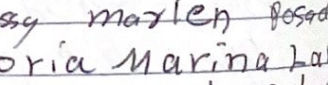 ssy marlen Posad
oria Marina La